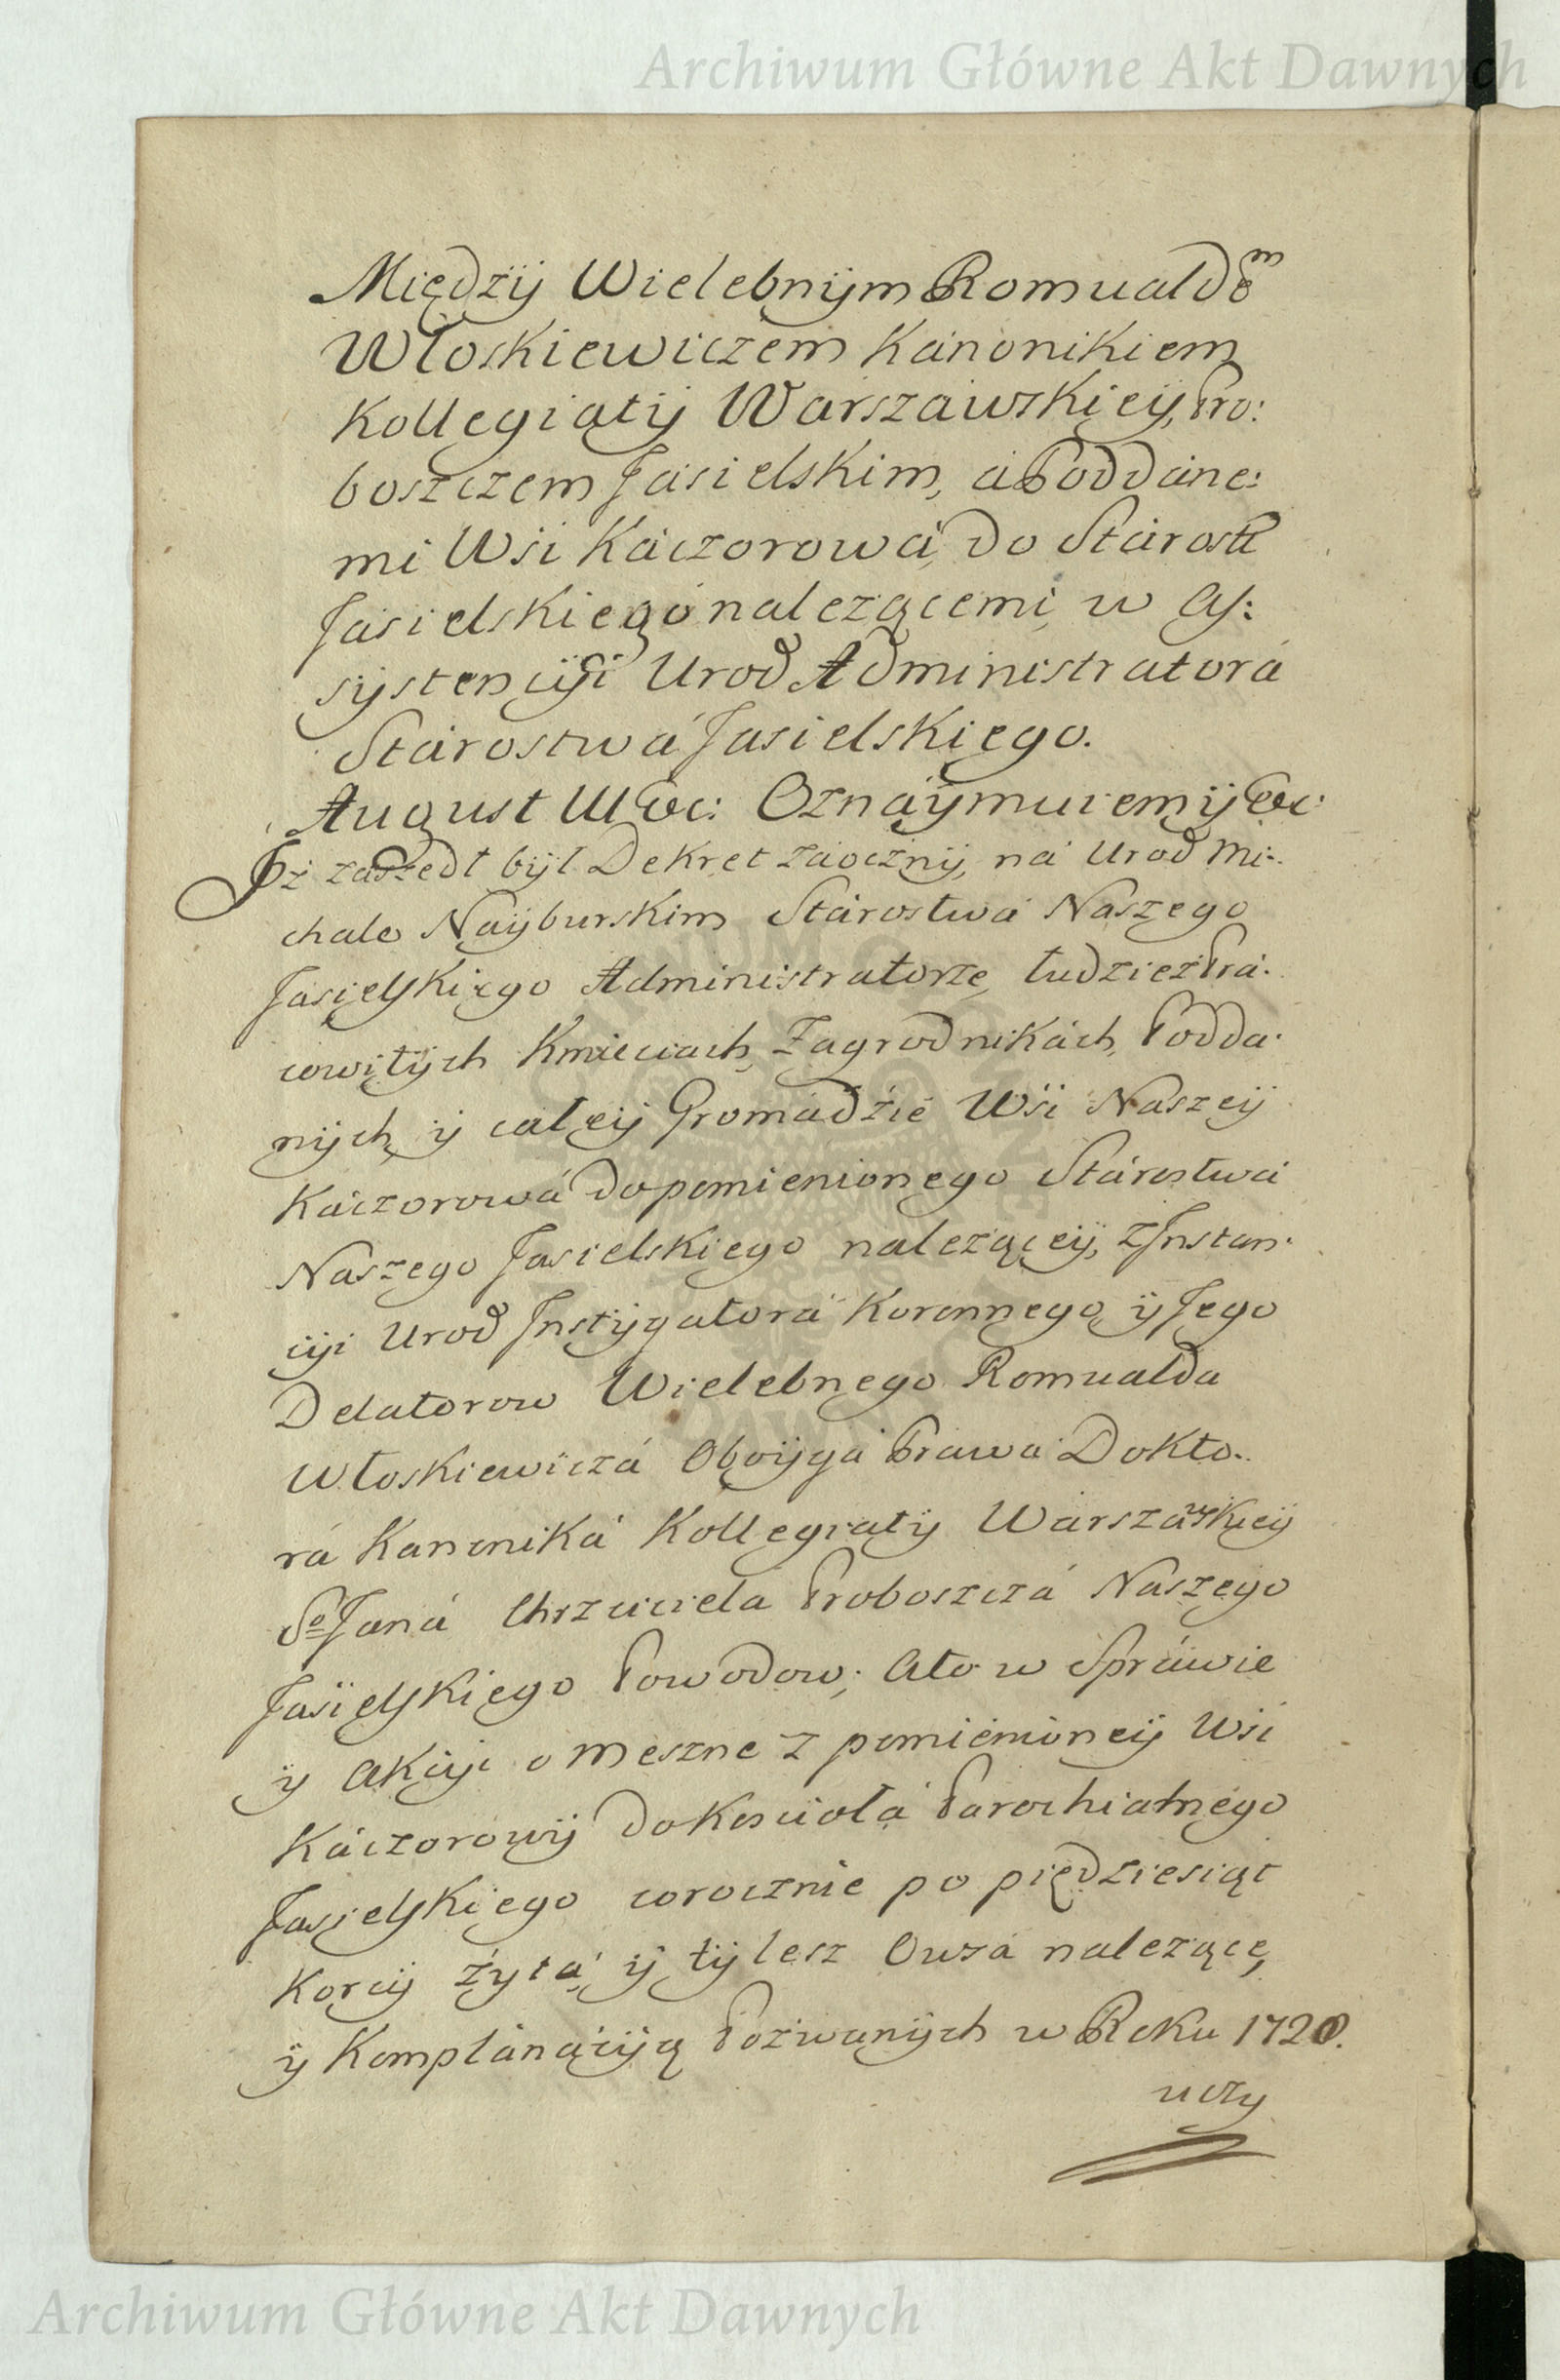 Archiwum Główne Akt Dawnych
Międzÿ Wielebnÿm Romualdem
Włoskiewiczem Kánonikiem
Kollegiatÿ Wárszáwskieÿ, Pro:
boszczem Jasielskim, á Poddáne:
mi Wsi Káczorowá, do Stárostt
Jasielskiego nalezącemi, w As:
sÿstencÿi Urod Administratorá
Stárostwá Jasielskiego.
August III &c: Oznáÿmuiemÿ &c:
Iz zaszedł bÿł Dekret záocznÿ, ná Urod Mi:
chale Naÿburskim Stárostwá Naszego
Jasielskiego Administratorze, tudziesz Prá:
cowitÿch Kmieciach, Zagrodnikách, Podda:
nÿch, ÿ całeÿ Gromádźie Wśi Nászeÿ
Káczorowá do pomienionego Stárostwá
Naszego Jasielskiego naleząceÿ, z Instan:
cÿi Urod Instÿgatorá Koronnego, ÿ Jego
Delatorow Wielebnego Romualda
Włoskiewiczá Oboÿga Prawa Dokto:
rá Kanoniká Kollegiatÿ Warszáwskieÿ
So Janá Chrzciciela Proboszczá Naszego
Jasielskiego Powodow; Ato w Spráwie
ÿ Akcÿi o Meszne z pomienioneÿ Wśi
Káczorowÿ do Koscioła Parochialnego
Jasielskiego corocznie po pięcdziesiąt
Korcÿ źytá, ÿ tÿlesz Owsá nalezące,
ÿ Komplanácÿą Pozwanÿch w Roku 1720.
uczy
Archiwum Główne Akt Dawnych